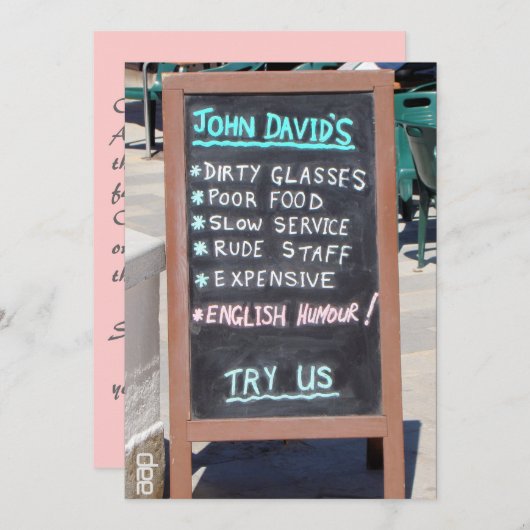 JOHN DAVID'S
*DIRTY GLASSES
*POOR FOOD
*SLOW SERVICE
*RUDE STAFF
*EXPENSIVE
*ENGLISH HUMOUR!
TRY US